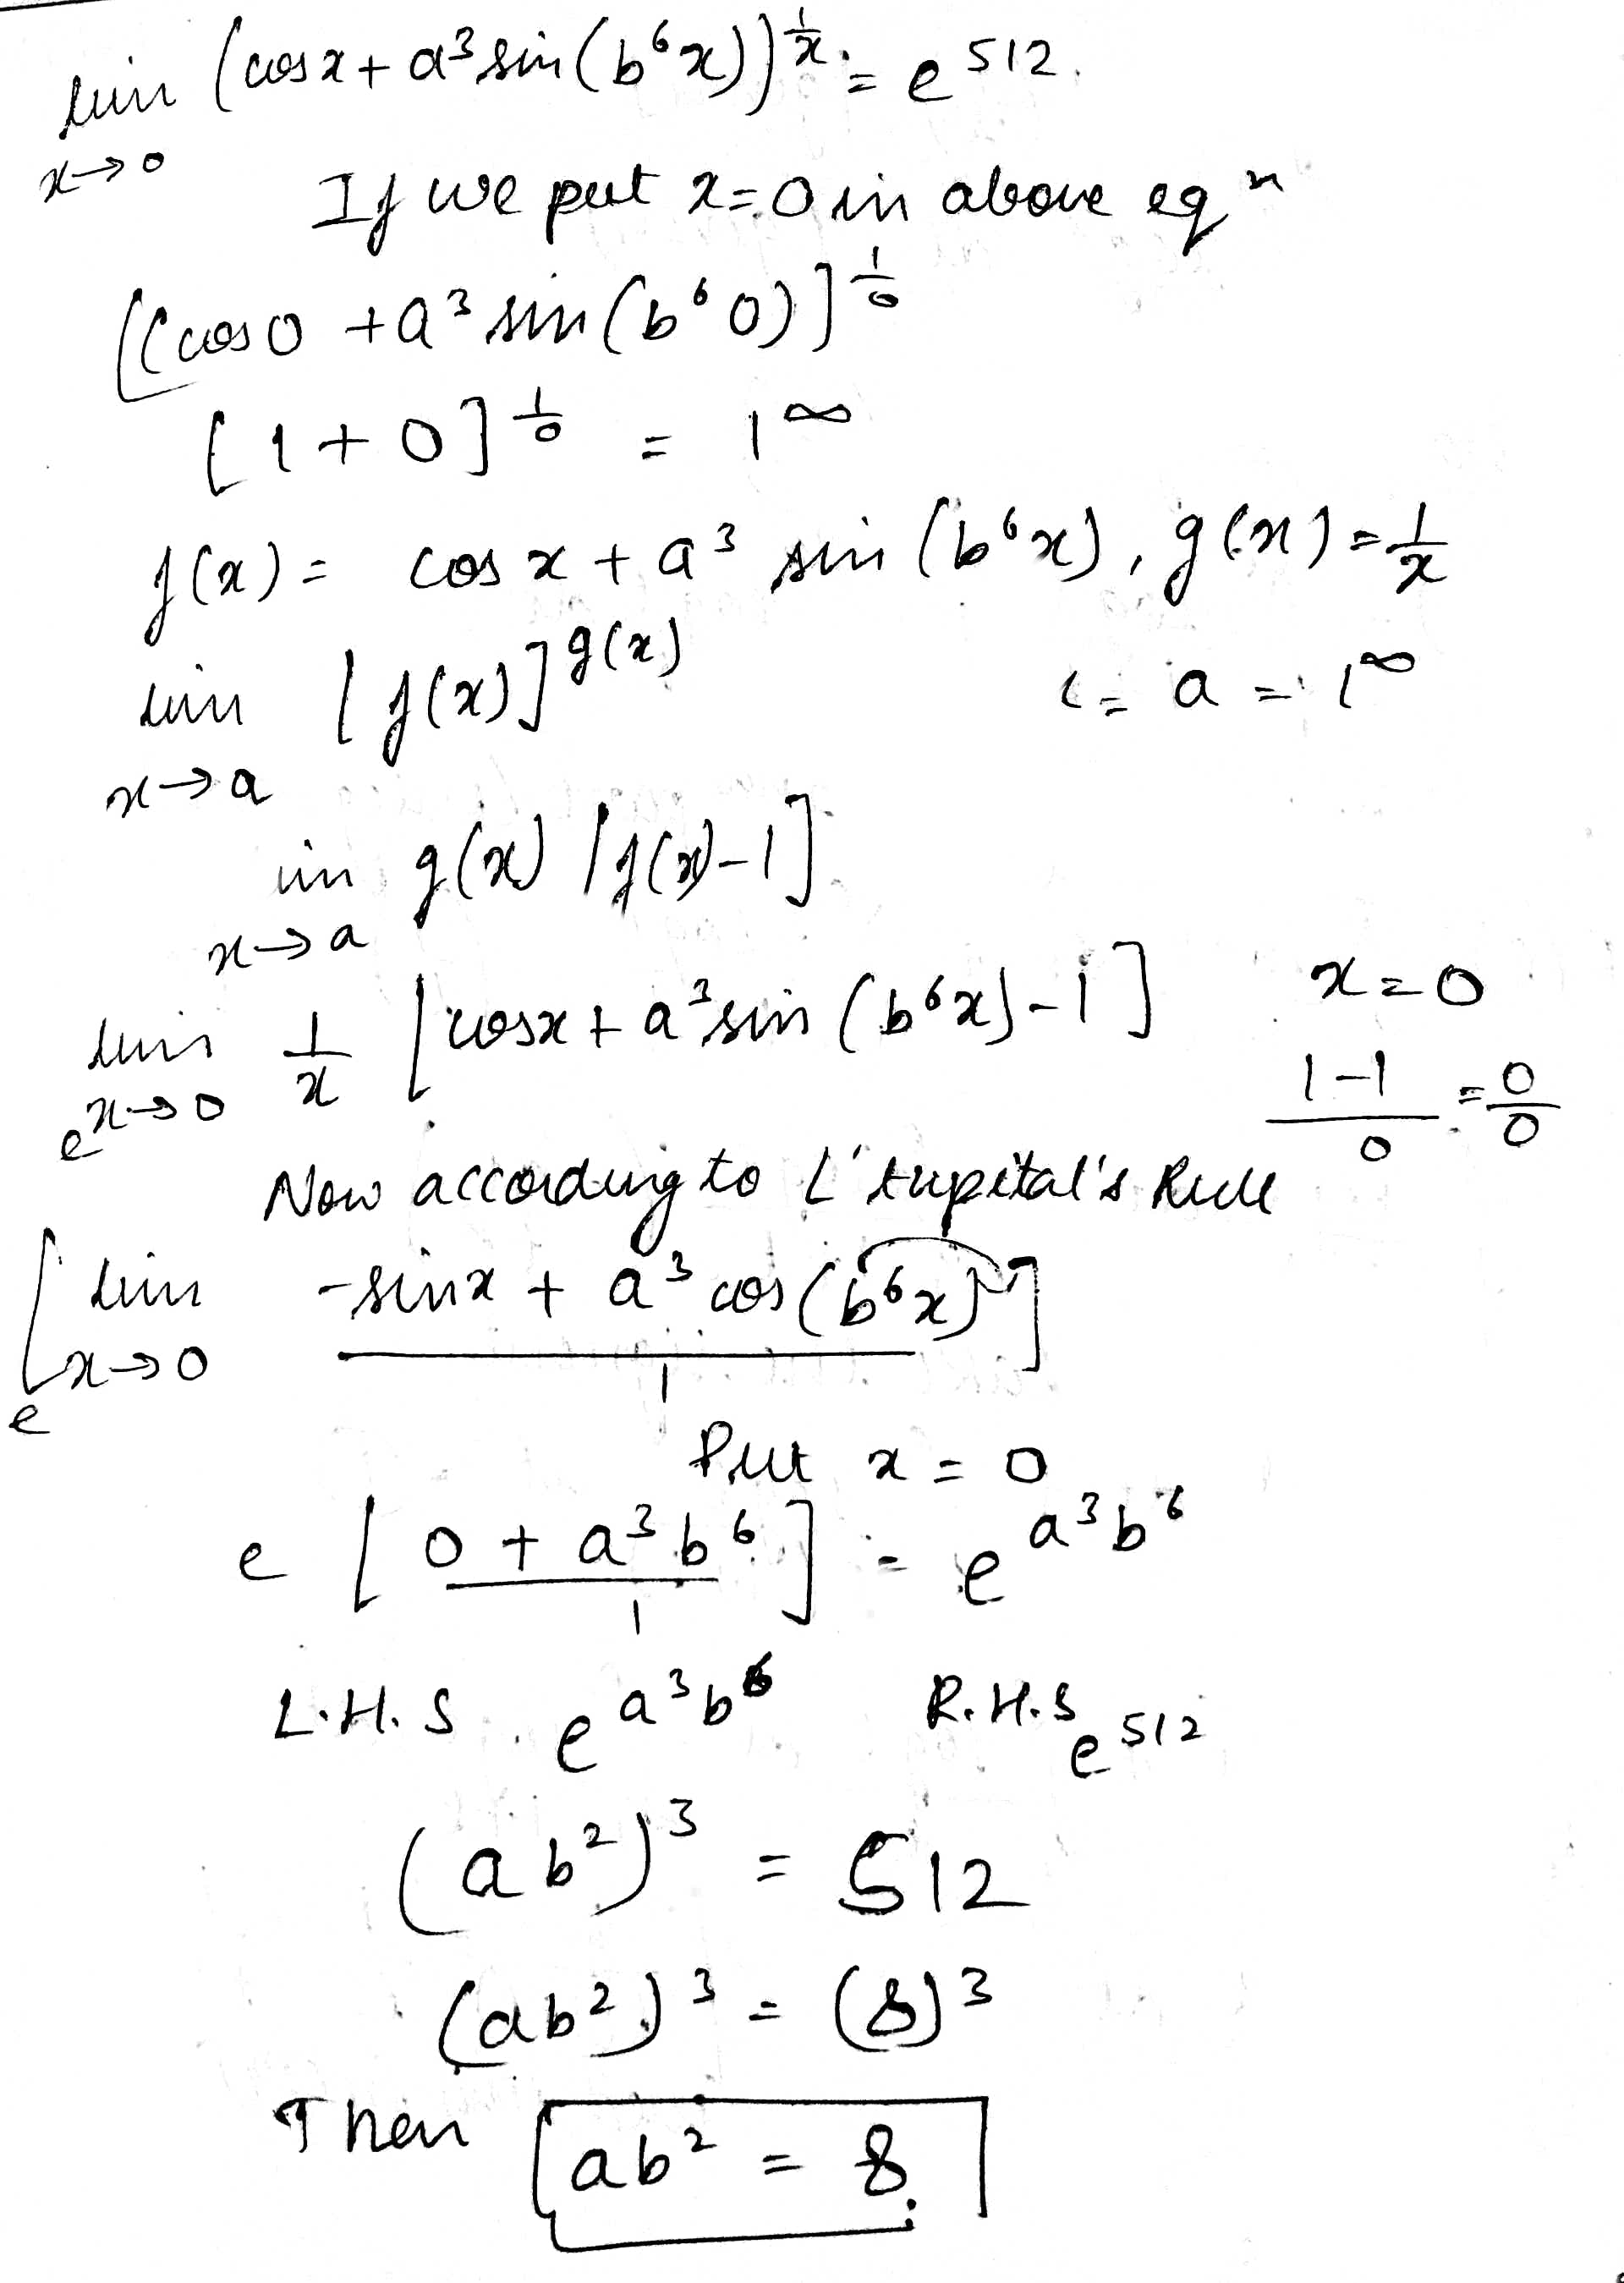 lim (cosx + a³ sin(b⁶x))^(1/x) = e^512.
x→0
If we put x=0 in above eqⁿ
[(cos0 + a³ sin(b⁶0)]^(1/0)
[1+0]^(1/0) = 1^∞
f(x) = cos x + a³ sin (b⁶x), g(x) = 1/x
lim [f(x)]^g(x) = a = 1^∞
x→a
im g(x) [f(x)-1]
x→a
lim 1/x [cosx + a³ sin (b⁶x) - 1] x=0
e x→0 (1-1)/0 = 0/0
Now according to L' Rule
[lim (-sinx + a³ cos(b⁶x))/1]
e x→0
Put x = 0
e [(0 + a³b⁶)/1] = e^(a³b⁶)
L.H.S. e^(a³b⁶) R.H.S e^512
(ab²)³ = 512
(ab²)³ = (8)³
Then ab² = 8.